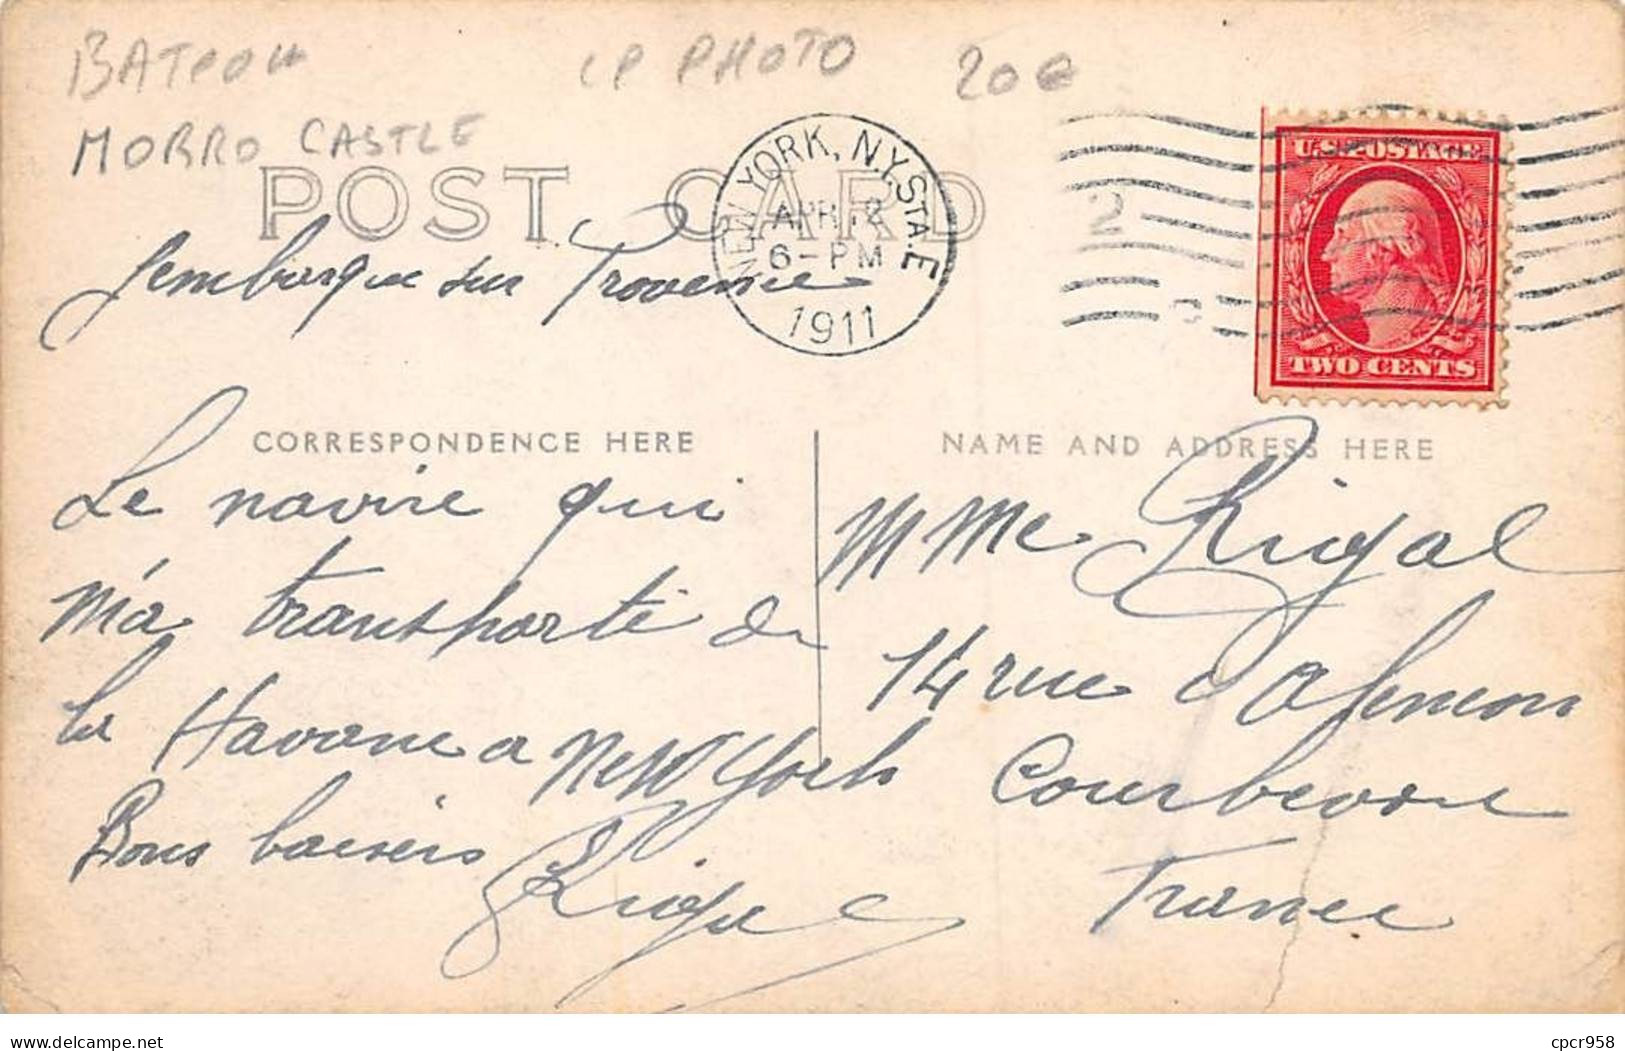 BATEAU
CP PHOTO
20€
MORRO CASTLE
POST CARD
NEW YORK, N.Y. STA. E
APR 12
6-PM
1911
2
U.S. POSTAGE
TWO CENTS
J'embarque sur Provence
CORRESPONDENCE HERE
Le navire qui
m'a transporté de
la Havane a New York
Bons baisers
Rigal
NAME AND ADDRESS HERE
Mme Rigal
14 rue
Courbevoie
France
delcampe.net
cpcr958